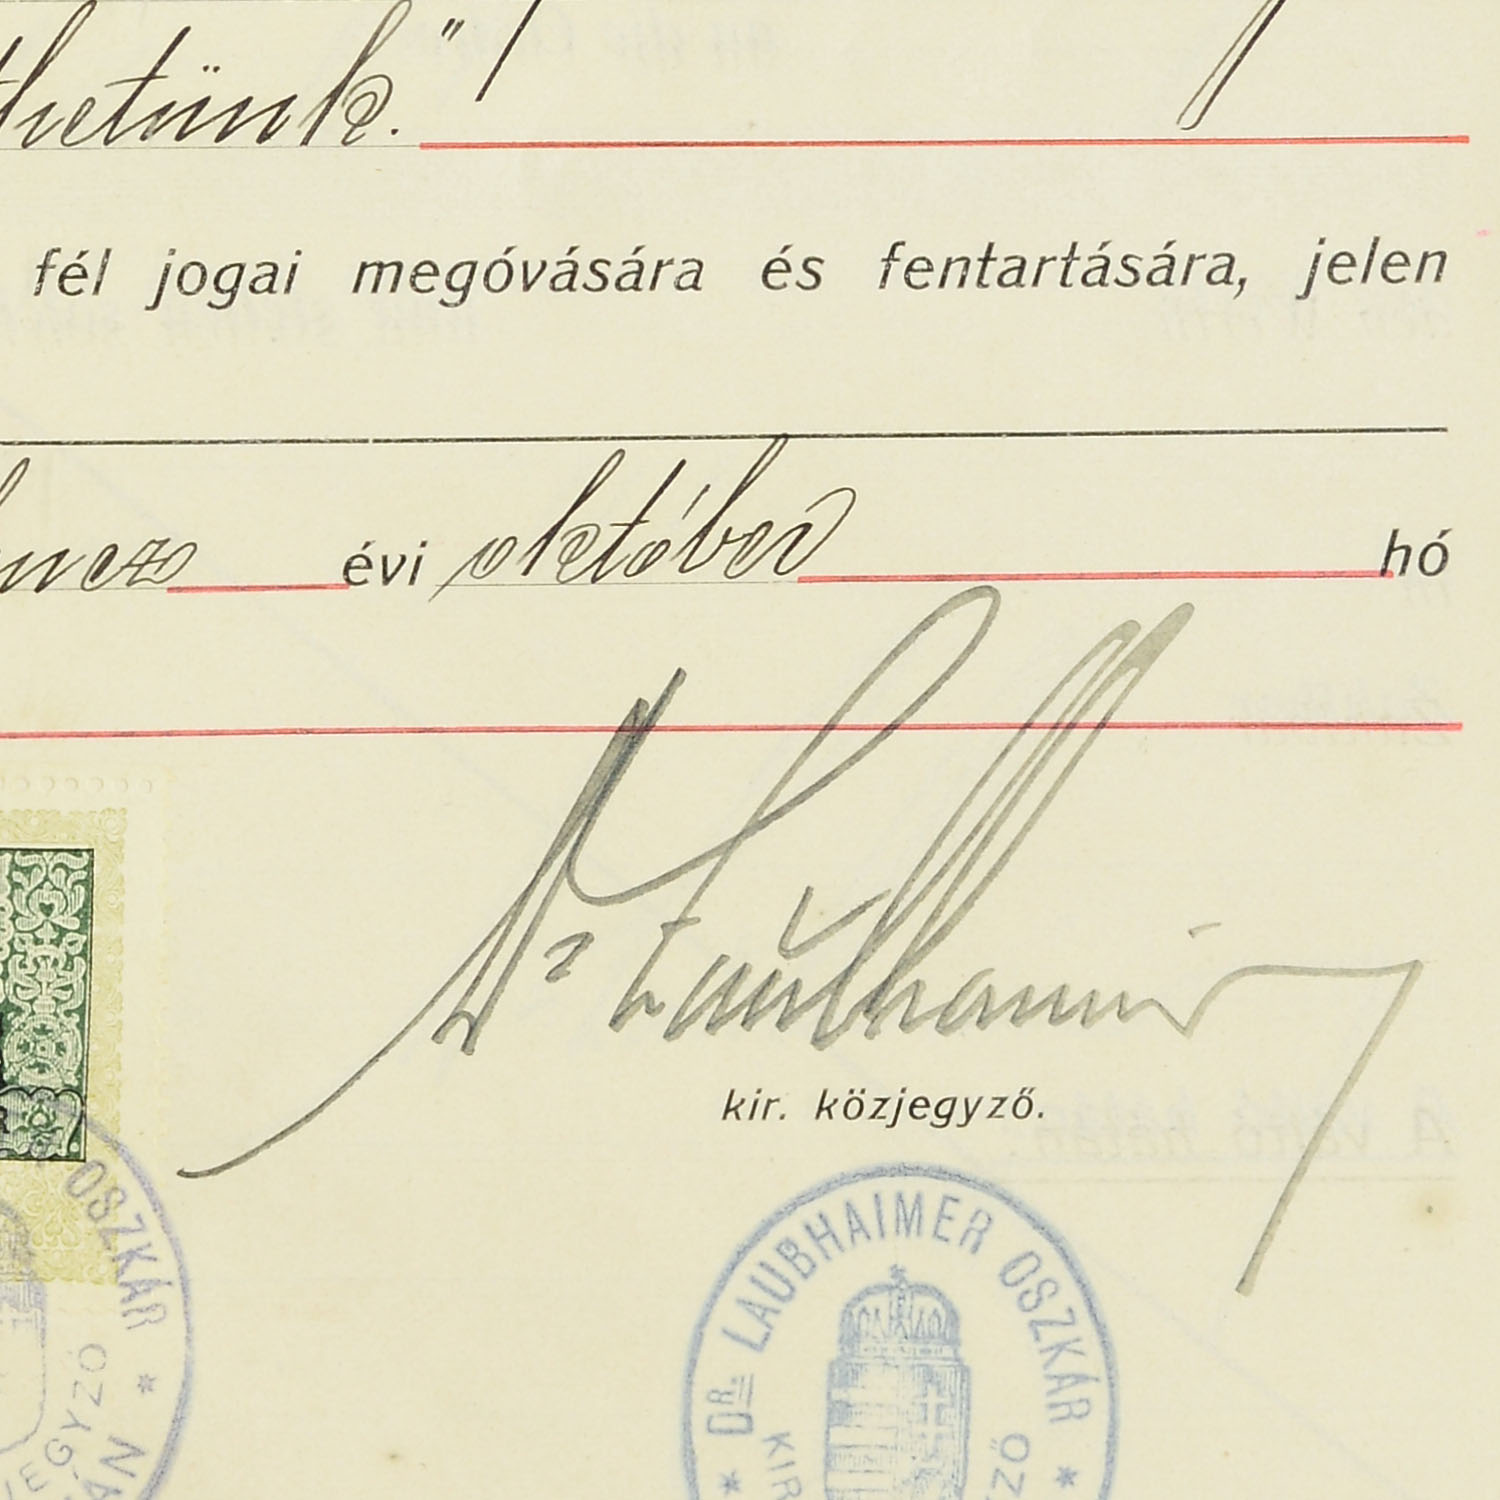 thetünk."
fél jogai megóvására és fentartására, jelen
évi október hó
Dr Laubhaimer
kir. közjegyző.
OSZKÁR *
DR. LAUBHAIMER OSZKÁR *